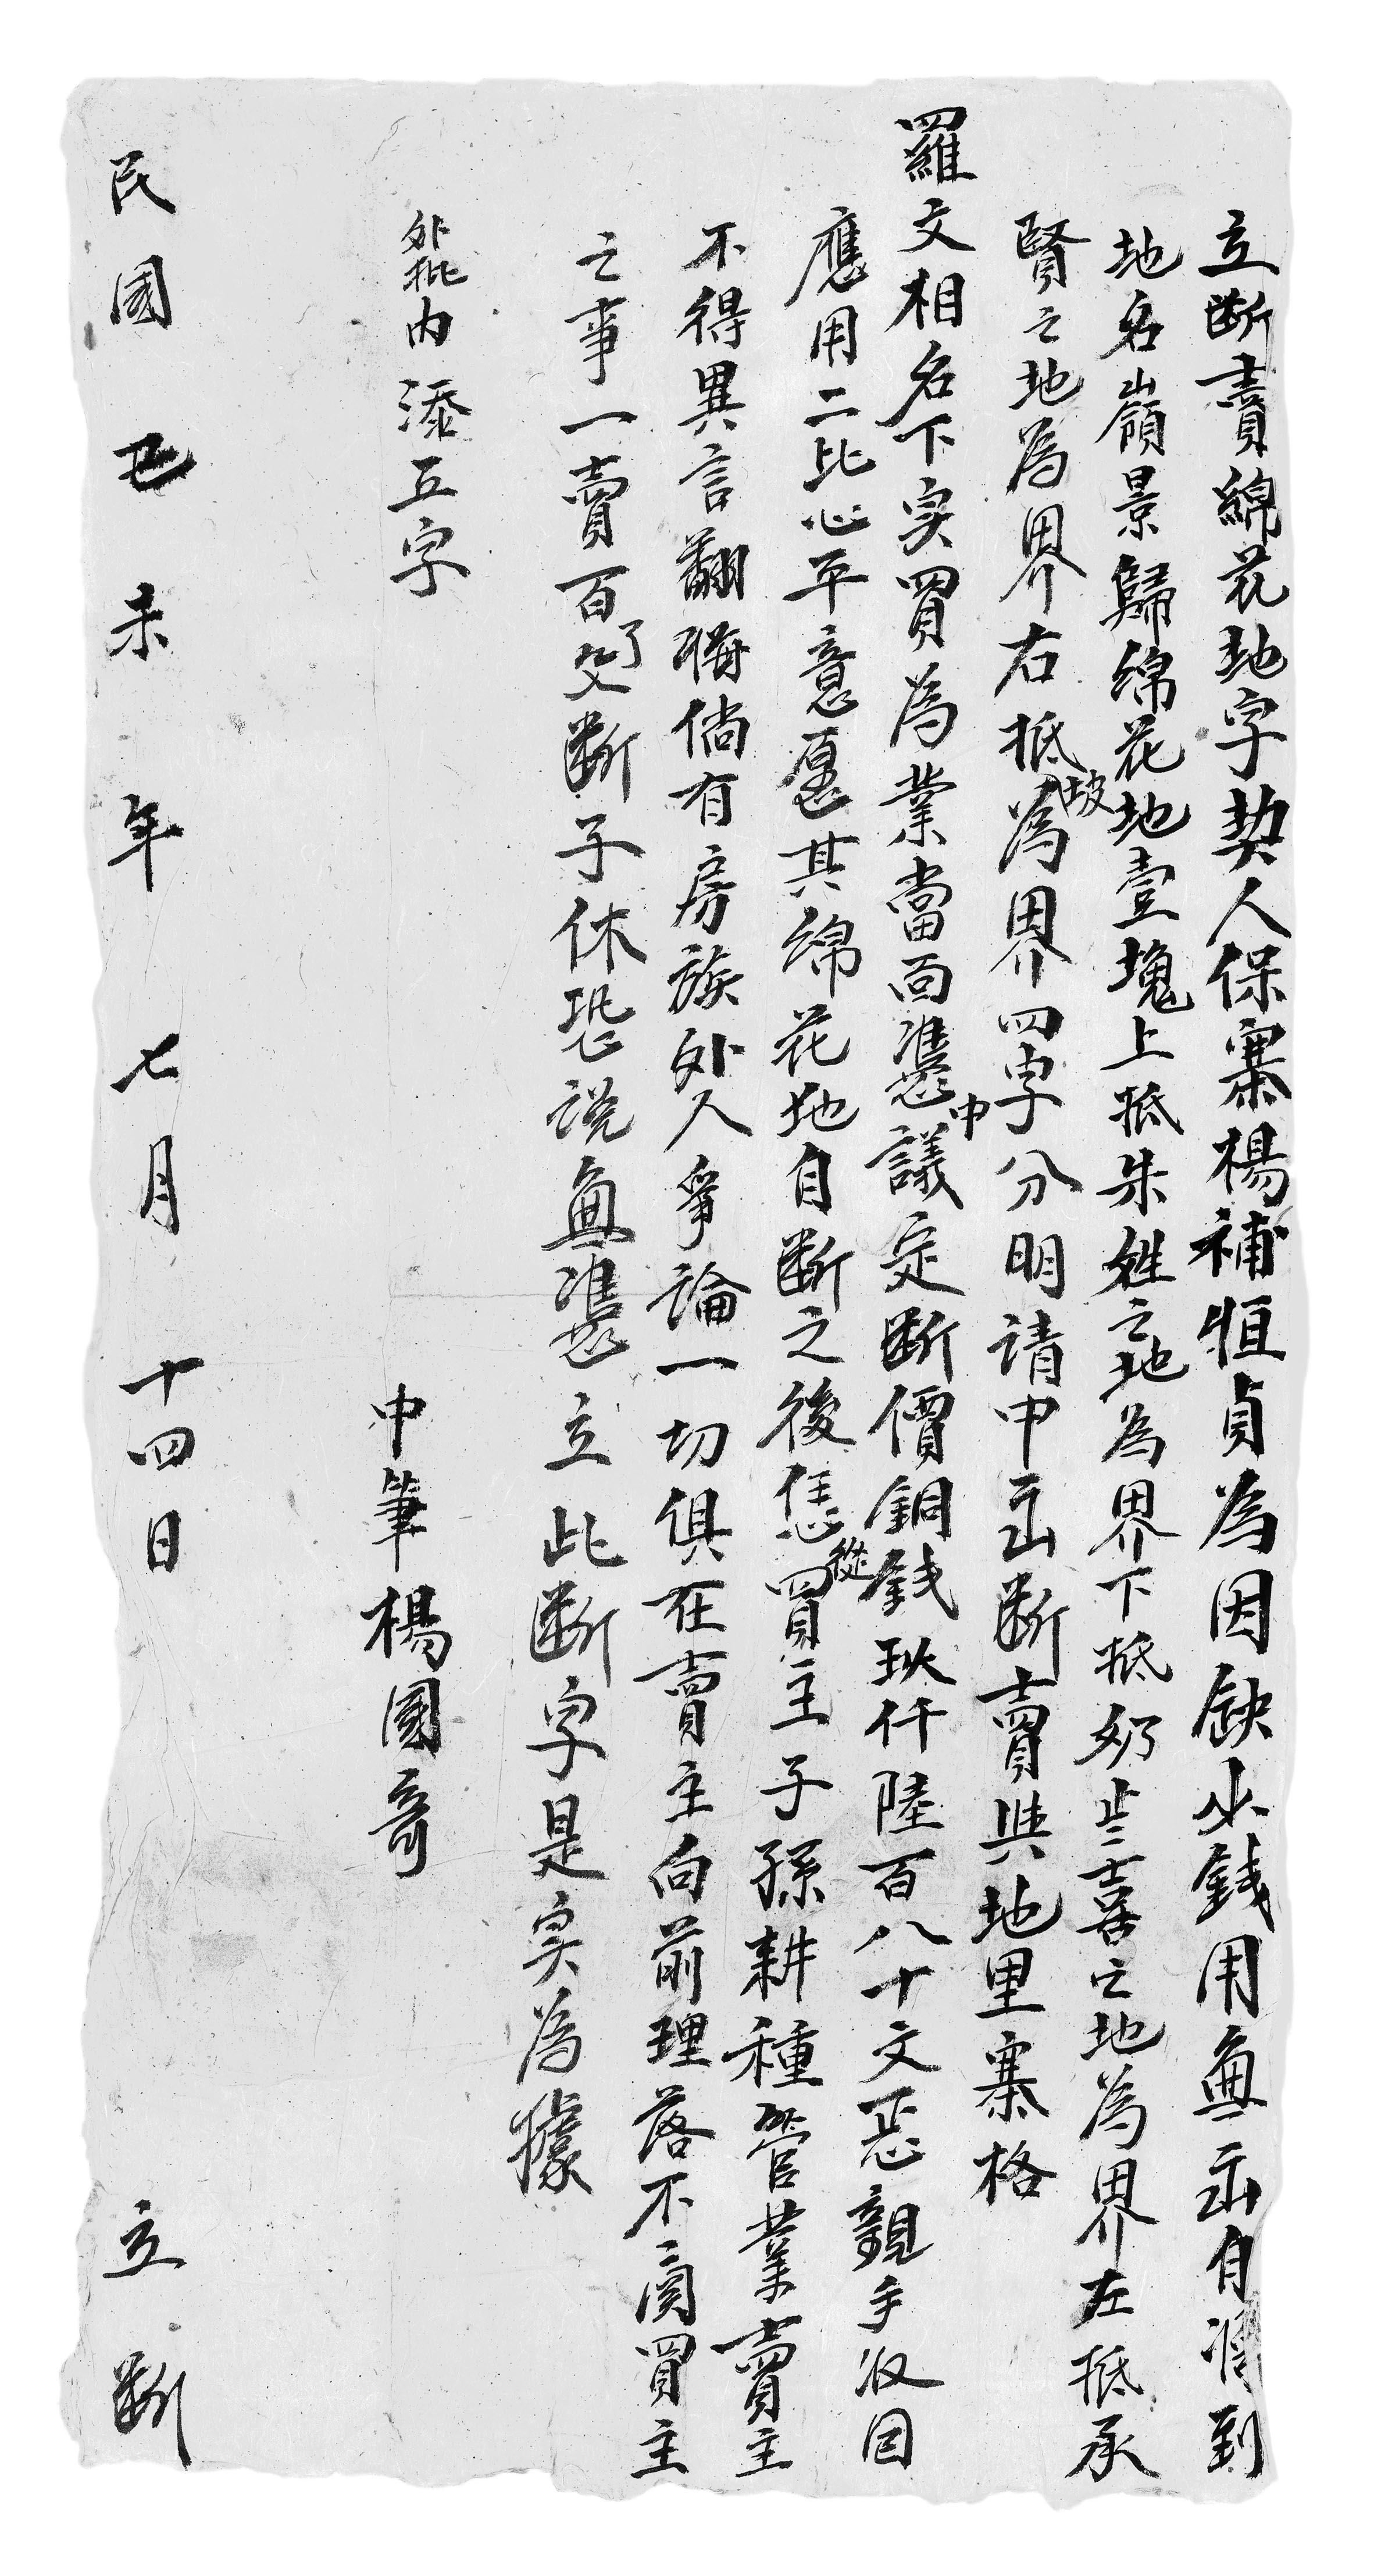 立断賣綿花地字契人保寨楊補恒貞為因缺少錢用無出自漘到
地名嶺景歸綿花地壹塊上抵朱姓之地為界下抵奶岩喜之地為界左抵承
賢之地為界右抵坡為界四字分明請中出断賣與地里寨格
羅文相名下实買為業當面憑中議定断價銅錢玖仟陸百八十文恁親手收回
應用二比心平意愿其綿花地自断之後恁從買主子孫耕種管業賣主
不得異言翻悔倘有房族外人爭論一切俱在賣主向前理落不関買主
之事一賣百了父断子休恐說無憑立此断字是实為據
外批內添五字
中筆楊國奇
民國己未年七月十四日 立断